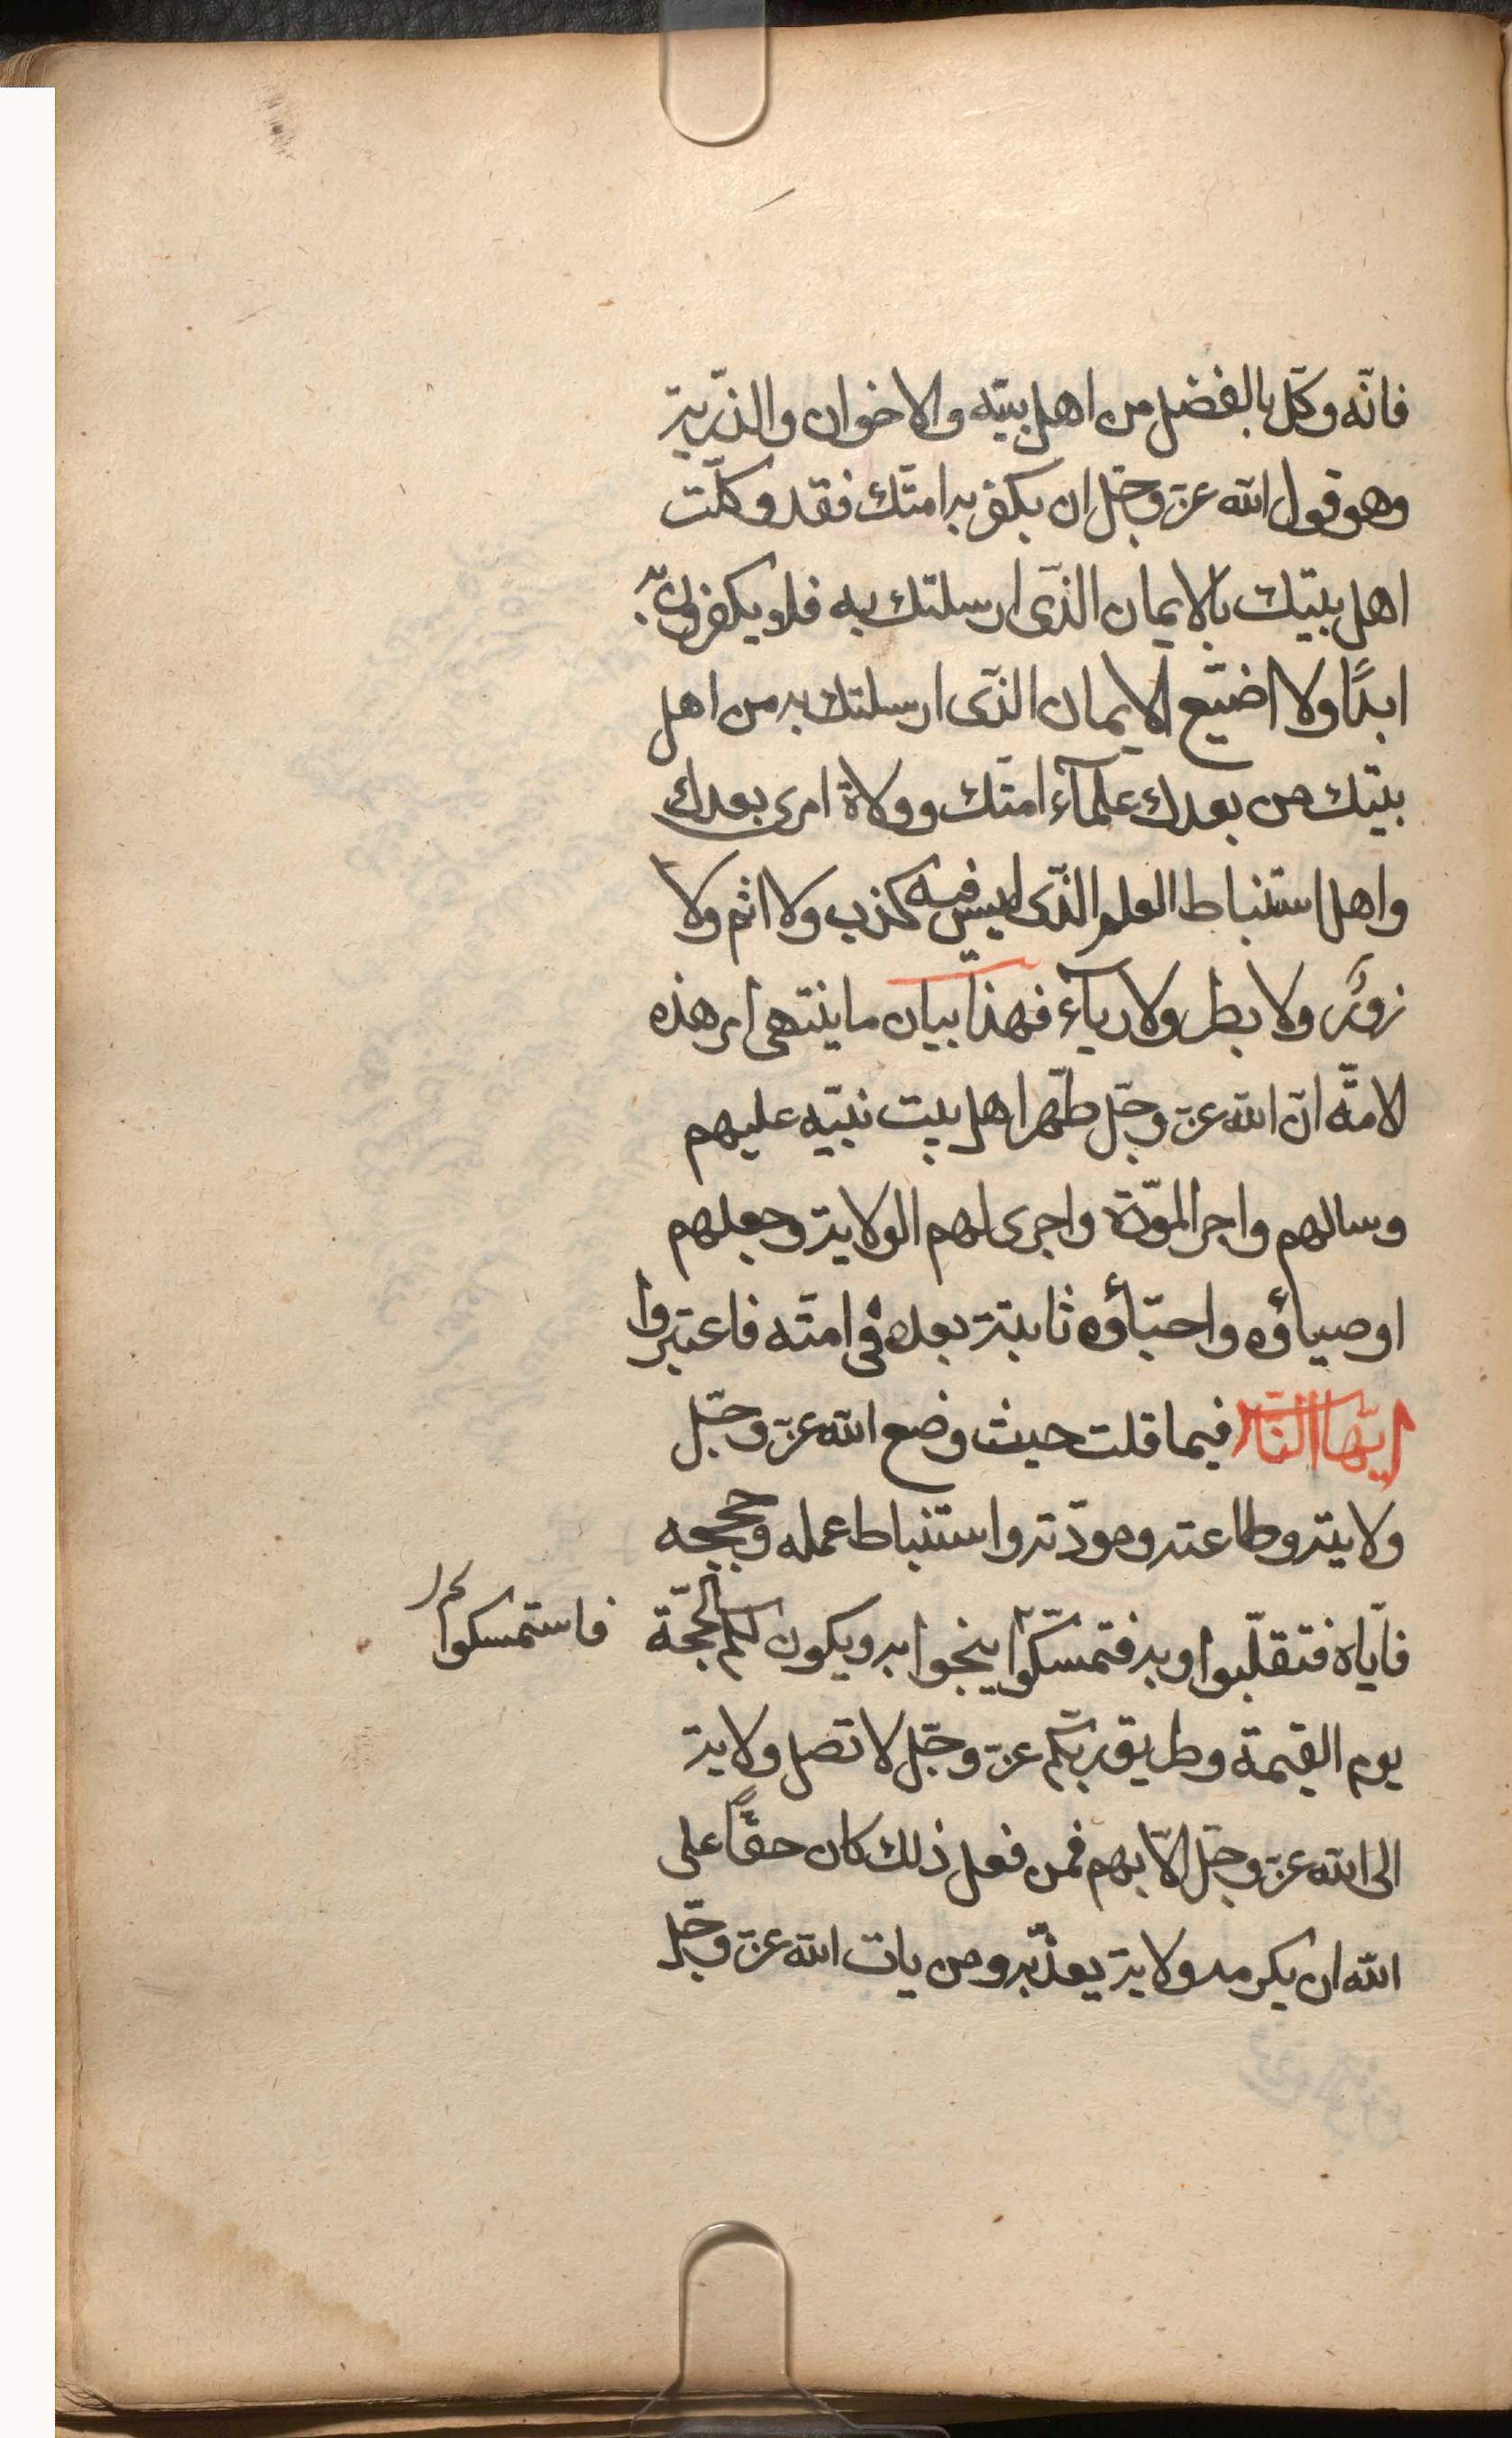 فانّه وكّل بالفضل من اهل بيته والاخوان والذّرية
وهو قول الله عزّ وجّل ان يكفر به امتّك فقد وكلّت
اهل بيتك بالايمان الذّى ارسلتك به فلا يكفرونّ به
ابدًا ولا اضيّع الايمان الذّى ارسلتك به من اهل
بيتك من بعدك علمآء امتّك وولاة امرى بعدك
واهل استنباط العلم الذّى ليس فيه كذب ولا اثم ولا
زور ولا بطر ولا رياّء فهذا بيان ما ينتهى امر هذه
الامّة انّ الله عزّ وجّل طهّر اهل بيت نبيّه عليهم
وسالهم واجر المودّة واجرى لهم الولاية وجعلهم
اوصياؤه واحبّاؤه ثابتة بعده فى امتّه فاعتبروا
ايّها النّاس فيما قلت حيث وضع الله عزّ وجّل
ولايته وطاعته ومودّته واستنباط عمله وحججه
فايّاه فتقلّبوا وبه فتمسّكوا ينجوا به ويكون لكم الحجّة
فاستمسكوا
يوم القيمة وطريق ربّكم عزّ وجّل لا تصل ولاية
الى الله عزّ وجّل الّا بهم فمن فعل ذلك كان حقًّا على
الله ان يكرمه ولا يه يعذّبه ومن يات الله عزّ وجّل